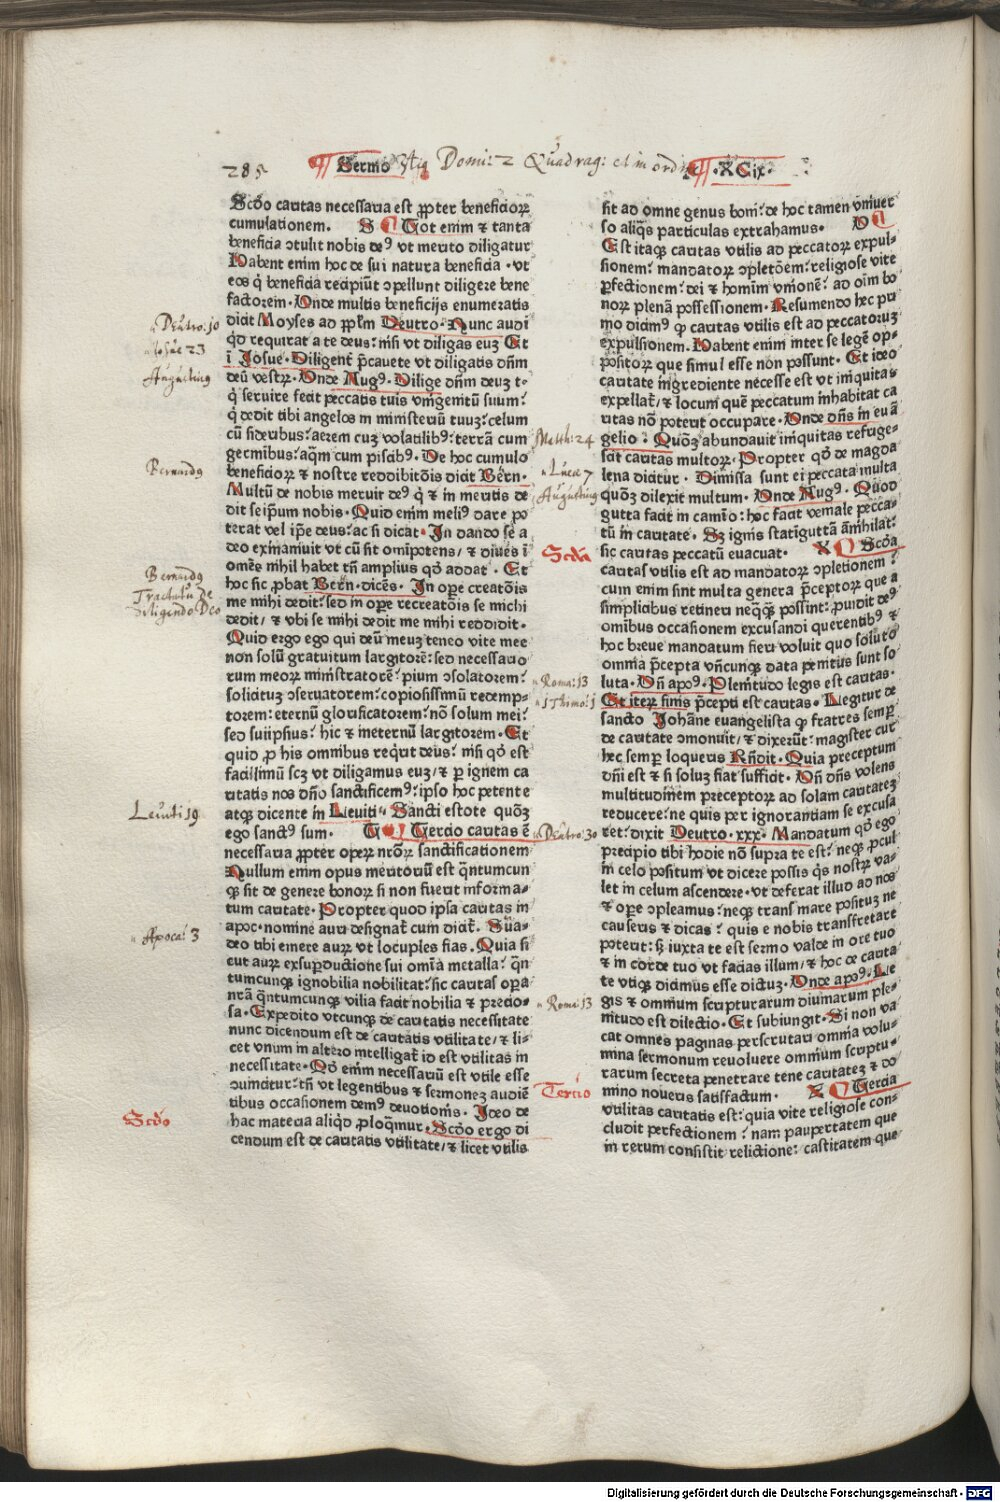 285 Sermo Domi: 2 Quadrag: et in ordine XCix.
Scḋo caritas necessaria est ꝓpter beneficioꝝ
cumulationem. S Tot enim ⁊ tanta
beneficia ↄtulit nobis deꝰ vt merito diligatur
Habent enim hoc de sui natura beneficia · vt
eos q̇ beneficia recipiūt ↄpellunt diligere bene
factorem · Unde multis beneficijs enumeratis
dicit Moyses ad ppl̄m Deutro · Nunc audi
qd̄ requirat a te deus: nisi vt diligas euꝫ Et
ī Josue · Diligent̄ p̄cauete vt diligatis dn̄m
deū vestrꝝ · Unde Augꝰ · Dilige dn̄m deuꝫ t⸗
q̇ seruire fecit peccatis tuis vnigenitū suum:
q̇ dedit tibi angelos in ministeriū tuuꝫ: celum
cū sideribus: aerem cuꝫ volatilibꝰ: terrā cum
germibus: aq̄m cum piscibꝰ. De hoc cumulo
beneficioꝝ ⁊ nostre reddibitōis dicit Bern̄ ·
Multū de nobis meruit deꝰ q̇ ⁊ in meritis de
dit seip̄um nobis · Quid enim meliꝰ dare po
terat vel ip̄e deus: ac si dicat · In dando se a
deo exinaniuit vt cū sit omīpotens / ⁊ diues ī
omēs nihil habet tn̄ amplius qḋ addat · Et
hoc sic ꝓbat Bern̄ · dicēs · In oꝑe creatōis
me mihi dedit: sed in oꝑe recreatōis se michi
dedit / ⁊ vbi se mihi dedit me mihi reddidit ·
Quid ergo ego qui deū meuꝫ teneo vite mee
non solū gratuitum largitorē: sed necessario
rum meoꝝ ministratorē: pium ↄsolatorem:
solicituꝫ ↄseruatorem: copiosissimū redemp⸗
torem: eternū glorificatorem: nō solum mei:
sed suiipsius: hic ⁊ ineternū largitorem · Et
quid ꝓ his omnibus requ̇t deus: nisi qḋ est
facillimū scꝫ vt diligamus euꝫ / ⁊ ꝑ ignem ca
ritatis nos dn̄o sanctificemꝰ: ipso hoc petente
atqꝫ dicente in Lieuiti⸗ Sancti estote quōꝫ
ego sanctꝰ sum. T Tercio caritas ē
necessaria ꝓpter opeꝝ nrōꝝ sanctificationem
Nullum enim opus meritoriū est qn̄tumcun
qꝫ sit de genere bonoꝝ si non fuerit informa⸗
tum caritate · Propter quod ipsa caritas in
apoc · nomine auri designat̄ cum dicit̄. Sua⸗
deo tibi emere auꝝ vt locuples fias. Quia si
cut auꝝ exsuꝑductione sui omīa metalla: qn̄
tumcunqꝫ ignobilia nobilitat: sic caritas oꝑa
nrā qn̄tumcunqꝫ vilia facit nobilia ⁊ precio⸗
sa · Expedito vtcunqꝫ de caritatis necessitate
nunc dicendum est de caritatis vtilitate / ⁊ li⸗
cet vnum in altero intelligat̄ id est vtilitas in
necessitate · Qḋ enim necessariū est vtile esse
ↄuincitur: tn̄ vt legentibus ⁊ sermoneꝫ audiē
tibus occasionem demꝰ deuotionis · Ideo de
hac materia aliqḋ ꝓloq̇mur. Scḋo ergo di
cendum est de caritatis vtilitate / ⁊ licet vtilis
sit ad omne genus boni: de hoc tamen vniuer
so aliq̇s particulas extrahamus · U
Est itaqꝫ caritas vtilis ad peccatoꝝ expul⸗
sionem: mandatoꝝ ↄpletōem: religiose vite
ꝑfectionem: dei ⁊ hominī vnionē: ad oīm bo
noꝝ plenā possessionem · Resumendo hec pri
mo dicimꝰ ꝙ caritas vtilis est ad peccatoruꝫ
expulsionem · Habent enim inter se legē op⸗
positoꝝ que simul esse non possunt · Et ideo
caritate ingrediente necesse est vt iniquitas
expellat̄ / ⁊ locum quē peccatum inhabitat ca
ritas nō poterit occupare · Unde dn̄s in euā
gelio: Quōꝫ abundauit iniquitas refrige⸗
scit caritas multoꝝ · Propter qḋ de magda
lena dicitur · Dimissa sunt ei peccata multa
quōꝫ dilexit multum · Unde Augꝰ · Quod
gutta facit in camīo: hoc facit veniale pecca⸗
tū in caritate · Sꝫ ignis statīguttā ān̄ihilat:
sic caritas peccatū euacuat · X Scḋa
caritas vtilis est ad mandatoꝝ ↄpletionem:
cum enim sint multa genera p̄ceptoꝝ que a
simplicibus retineri neq̄qꝫ possint: ꝓuidit deꝰ
omībus occasionem excusandi querentibꝰ ⁊
hoc breue mandatum fieri voluit quo soluto
omnia p̄cepta vn̄cunqꝫ data penitus sunt so
luta · Un̄ apoꝰ · Plenitudo legis est caritas ·
Et iteꝝ finis p̄cepti est caritas · Legitur de
sancto Johāne euangelista ꝙ fratres semꝑ
de caritate ↄmonuit / ⁊ dixerūt: magister cur
hec semꝑ loqueris Rn̄dit · Quia preceptum
dn̄i est ⁊ si soluꝫ fiat sufficit · Un̄ dn̄s volens
multitudinem preceptoꝝ ad solam caritateꝫ
reducere: ne quis per ignorantiam se excusa
ret: dixit Deutro · xxx · Mandatum qḋ ego
precipio tibi hodie nō supra te est: neqꝫ ꝓcul
in celo positum vt dicere possis q̇s nostꝝ va⸗
let in celum ascendere · vt deferat illud ad nos
⁊ oꝑe ↄpleamus: neqꝫ trans mare posituꝫ ne
causeris ⁊ dicas: quis e nobis transfretare
poterit: sꝫ iuxta te est sermo valde in ore tuo
⁊ in corde tuo vt facias illum / ⁊ hoc de carita
te vtiqꝫ dicimus esse dictuꝫ · Unde apoꝰ · Le
gis ⁊ omnium scripturarum diuinarum ple⸗
nitudo est dilectio · Et subiungit · Si non va
cat omnes paginas perscrutari omnia volu⸗
mina sermonum reuoluere omnium scriptu⸗
rarum secreta penetrare tene caritateꝫ ⁊ do
mino noueris satisfactum · X Tercia
vtilitas caritatis est: quia vite religiose con⸗
cludit perfectionem: nam paupertatem que
in rerum consistit relictione: castitatem que
Deutro: 10
Josue 23
Augustinꝰ
Bernardꝰ
Bernardꝰ
Tractatu de
diligendo Deo
Leviti 19
Apoca: 3
Scḋo
Matth: 24
Lucæ 7
Augustinꝰ
Scḋa
Roma: 13
1 Thimo: 1
Deutro: 30
Roma: 13
Tercio
Digitalisierung gefördert durch die Deutsche Forschungsgemeinschaft - DFG